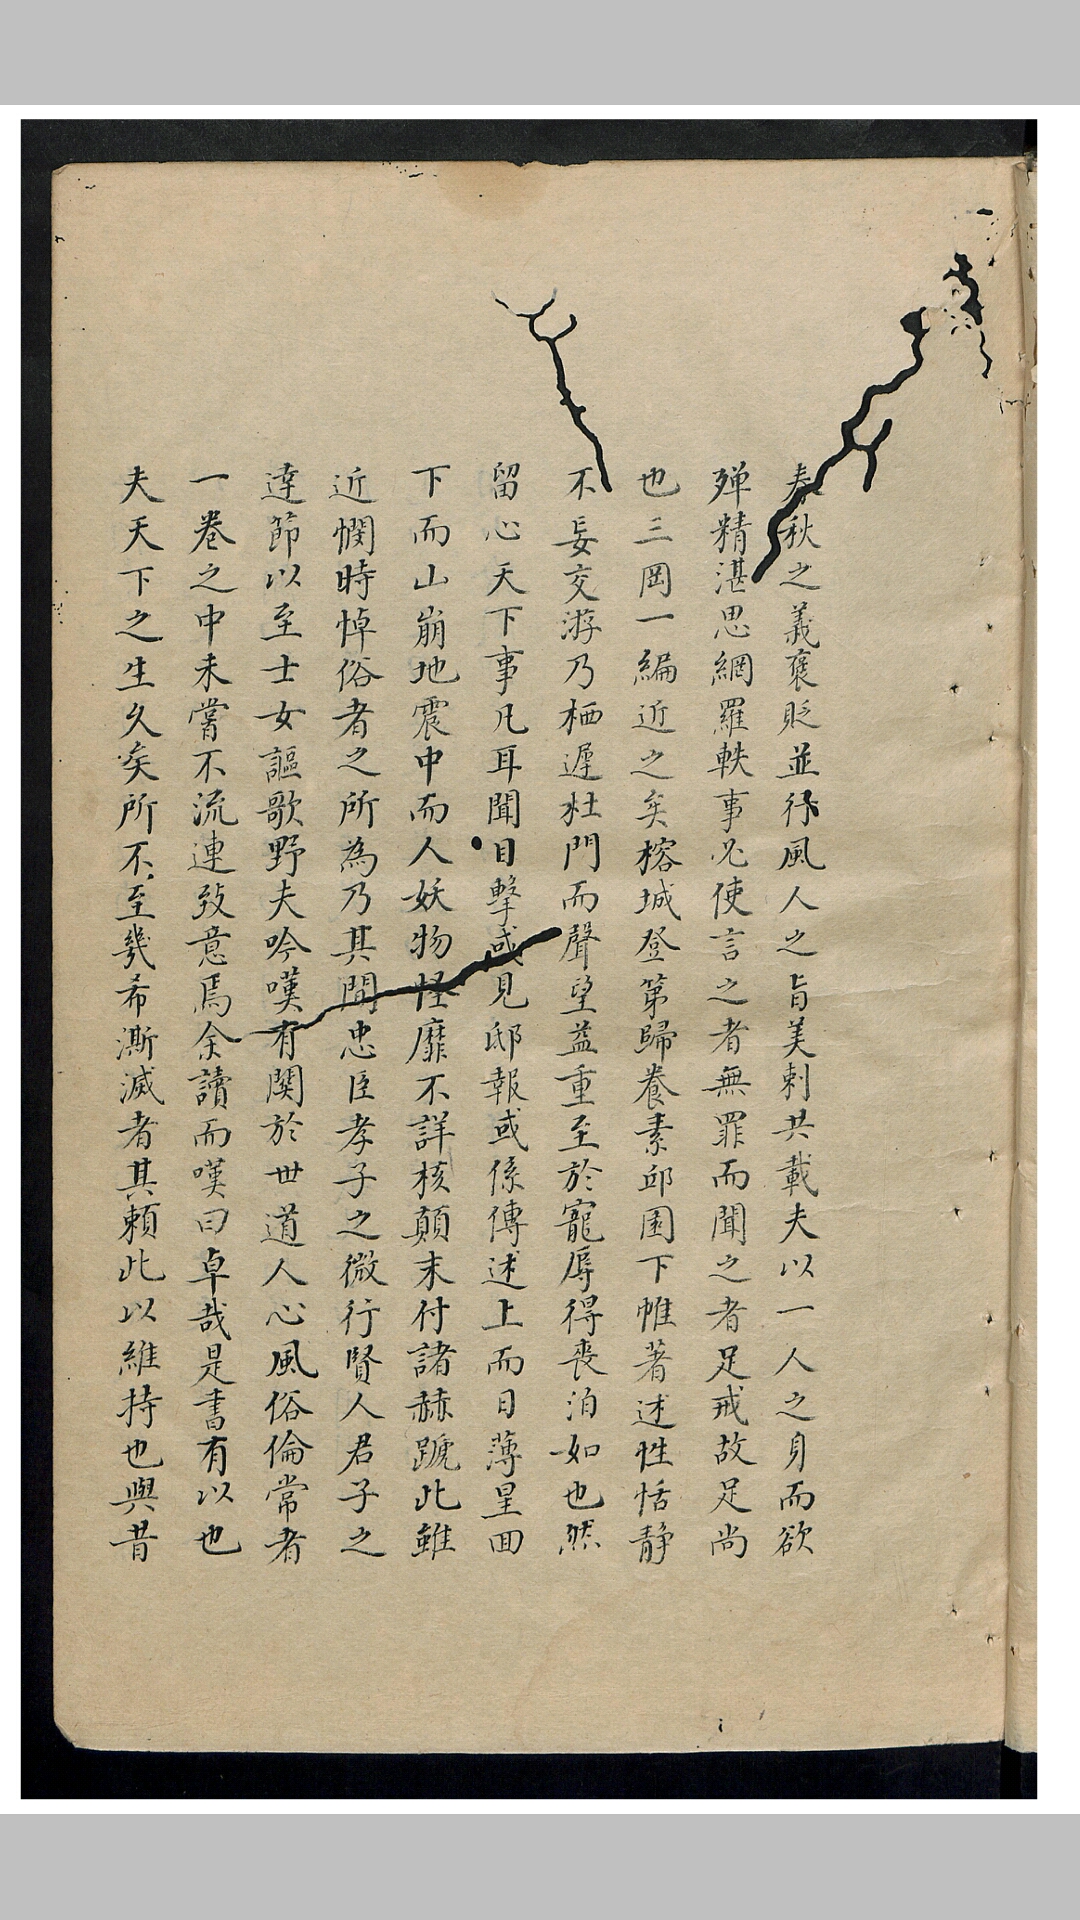 春秋之義褒貶並行風人之旨美刺共載夫以一人之身而欲
殫精湛思網羅軼事必使言之者無罪而聞之者足戒故足尚
也三岡一編近之矣榕城登第歸養素邱園下帷著述性恬静
不妄交游乃栖遲杜門而聲望益重至於寵辱得喪泊如也然
留心天下事凡耳聞目擊或見邸報或係傳述上而日薄星回
下而山崩地震中而人妖物怪靡不詳核顛末付諸赫蹏此雖
近憫時悼俗者之所為乃其間忠臣孝子之微行賢人君子之
達節以至士女謳歌野夫吟嘆有関於世道人心風俗倫常者
一卷之中未嘗不流連致意焉余讀而嘆曰卓哉是書有以也
夫天下之生久矣所不至幾希澌滅者其賴此以維持也與昔